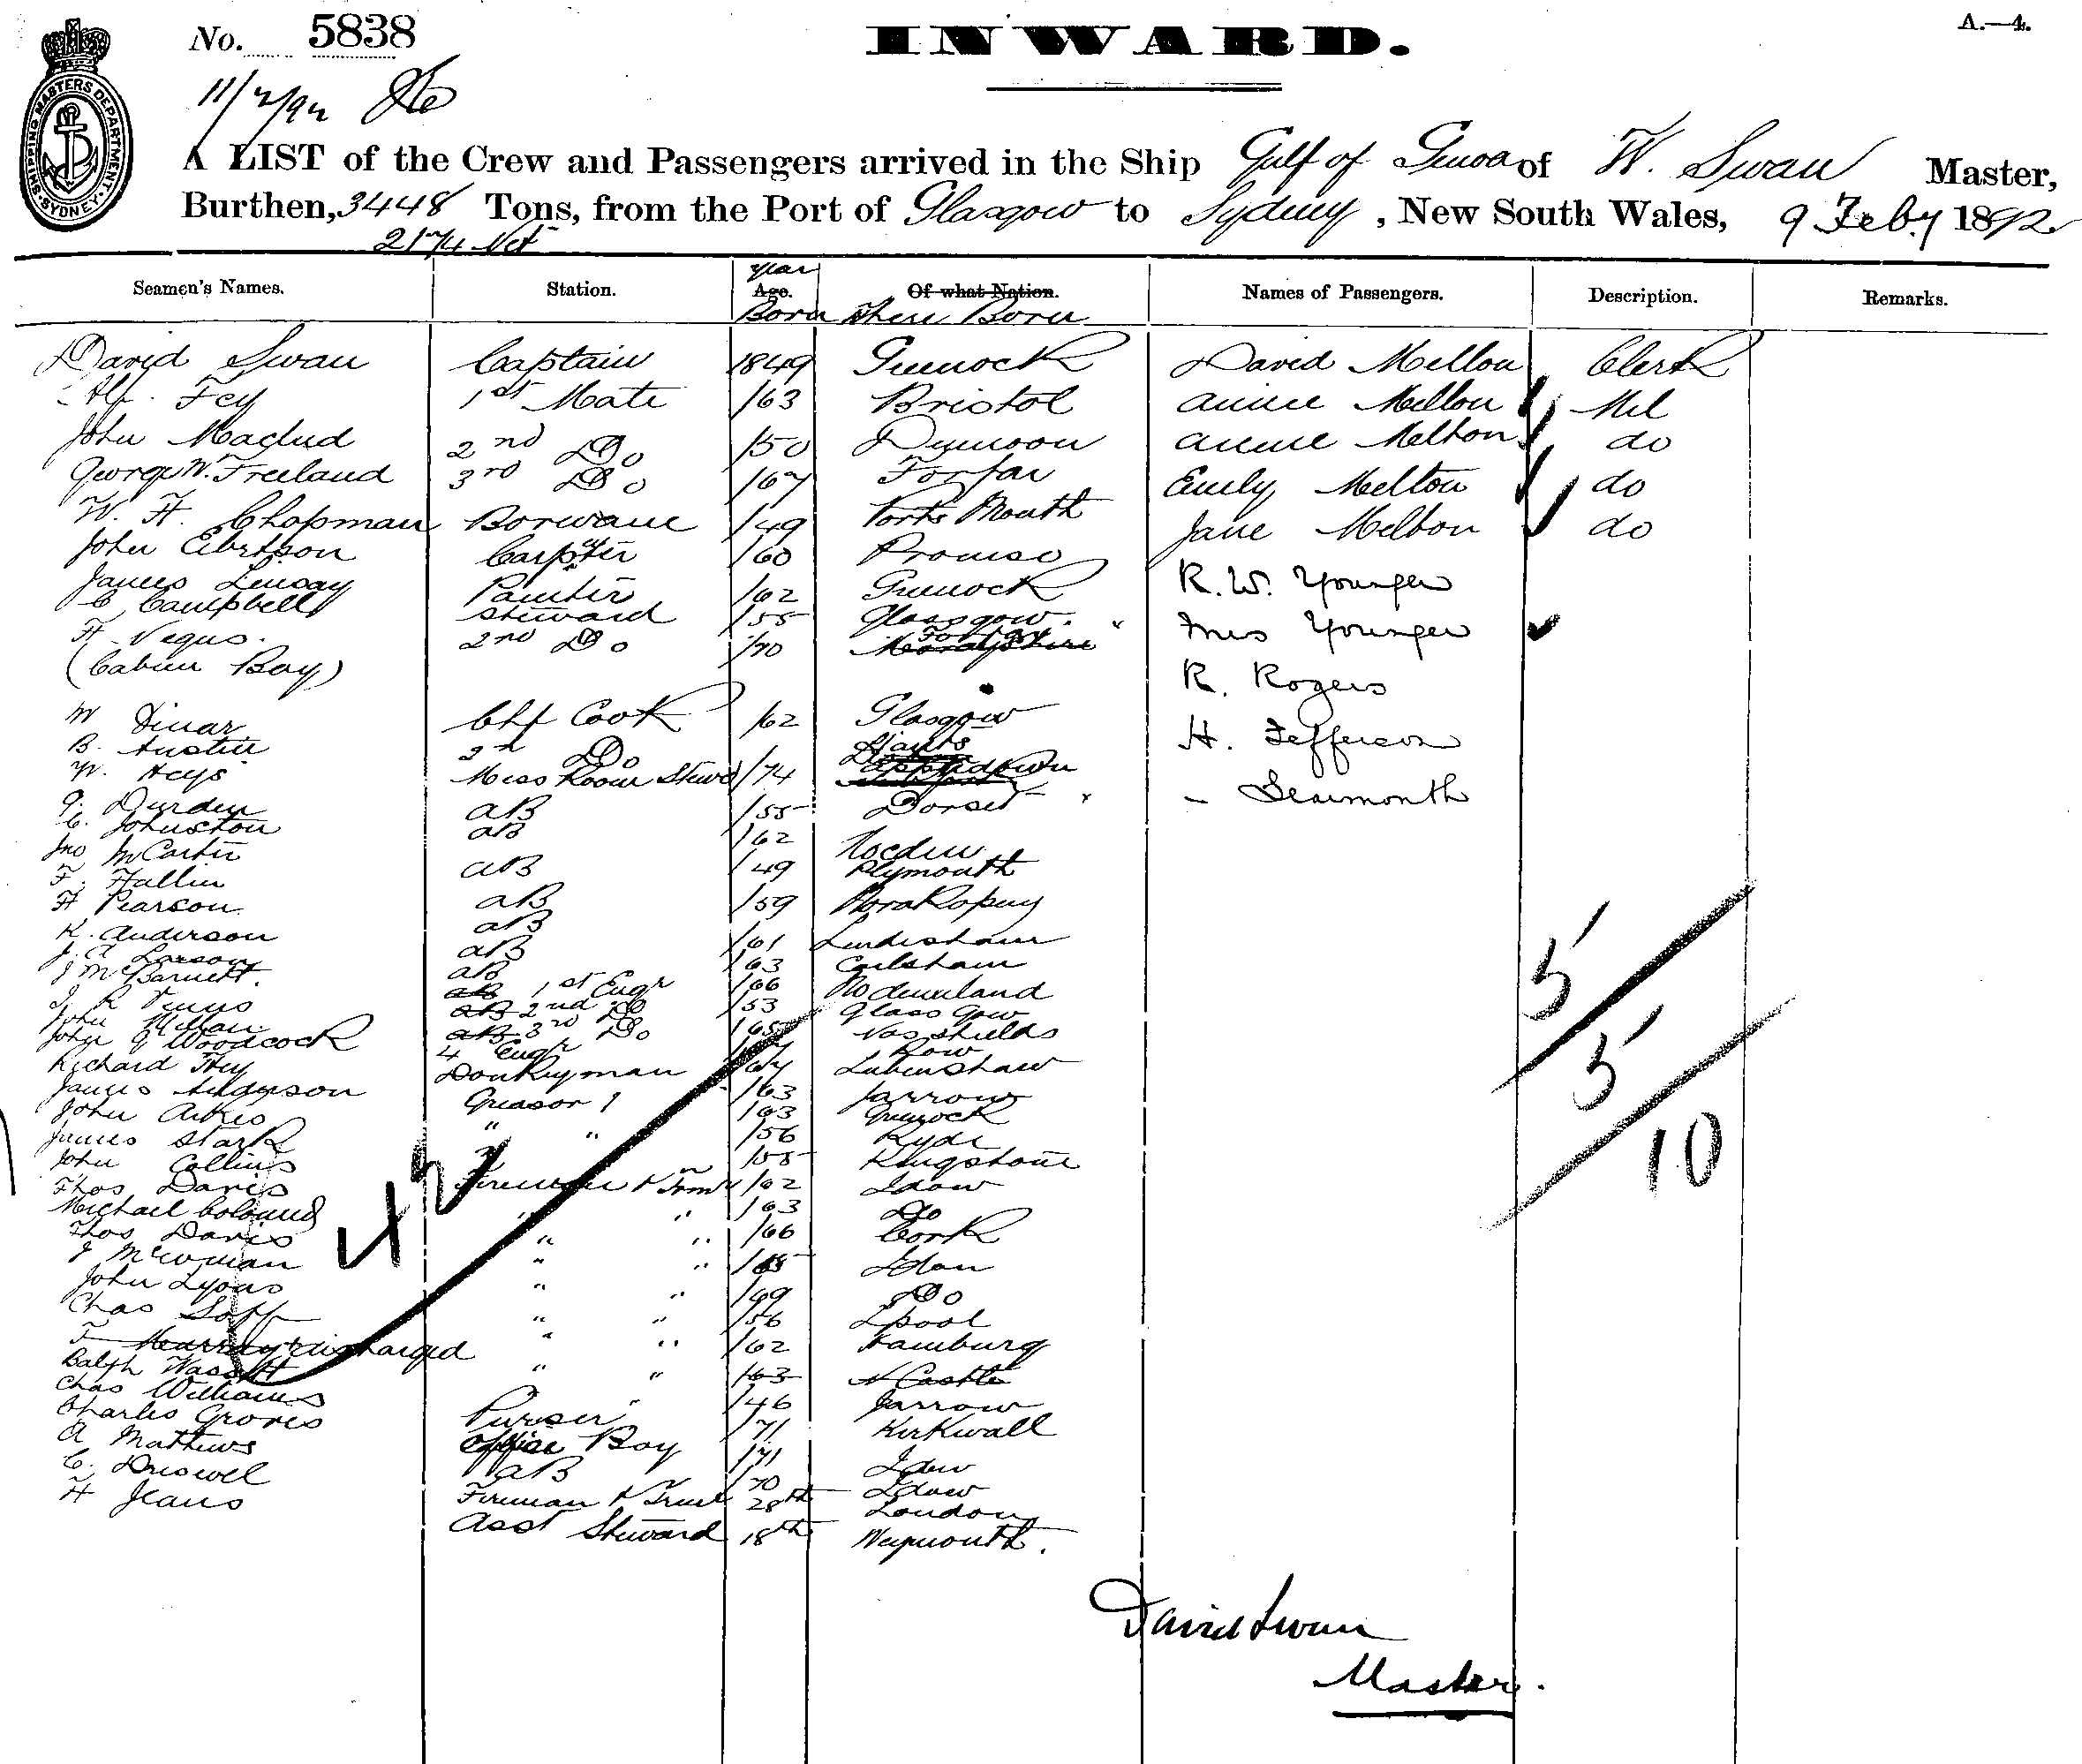 No. 5838
INWARD.
A.—4.
SHIPPING MASTERS DEPARTMENT
SYDNEY
11/2/92
A LIST of the Crew and Passengers arrived in the Ship Gulf of Genoa of W. Swan Master,
Burthen, 3448 Tons, from the Port of Glasgow to Sydney, New South Wales, 9 Feby 1892
2174 Net
Seamen's Names. Station. Year Age. Born Of what Nation. Where Born Names of Passengers. Description. Remarks.
David Swan Captain 1849 Greenock David Mellon Clerk
Alf. Fey 1st Mate /63 Bristol Annie Mellon Nil
John 2nd Do /50 Annie Melton do
George W. Freeland 3rd Do /67 Forfar Emily Melton do
W. H. Chapman /49 Ports Mouth Jane Melton do
John /60
James Linsay Painter /62 Greenock R. W. Younger
C Campbell Steward /55 Glasgow. Mrs Younger
H Negus. 2nd Do /70
(Cabin Boy) R. Rogers
W Dinar Chf Cook /62 Glasgow H. Jefferson
B. Austin 2nd Do Hants
W. Heys Mess Room Stewd /74 - Learmonth
G. Durden AB /55 Dorset
C. Johnston AB /62
Jno McCarter AB /49 Plymouth
F. Hallin AB /59
H Pearson AB
K. Anderson AB /61
J. A Larson AB /63
J McBarnett. AB 1st Engr /66
J. R Venus AB 2nd Do /53 Glasgow
John Millan AB 3rd Do /65 Nos Shields
John G Woodcock 4 Engr Row
Richard Hey Donkeyman /67
James Anderson Greasor 1 /63 Jarrow
John Aitkes " " /63 Greenock
James Stark /56 Ryde
John Collins /58 Kingstone
Thos Davis Fireman & Trmr /62 Ldow
Michael " " /63 Do
Thos Davis " " /66 Cork
J McCowan " " /68 Ldon
John Lyons " " Do
Chas " " /56 Lpool
T discharged " " /62 Hamburg
Ralph " " /63 N Castle
Chas Williams " /46 Jarrow
Charles Groves Purser /71 Kirkwall
A Mathews Office Boy /71
C. Driswel AB 70 Ldow
H Jeans Fireman & Trmr 28th London
Asst Steward 18th Weymouth.
42
5
5
10
David Swan
Master.